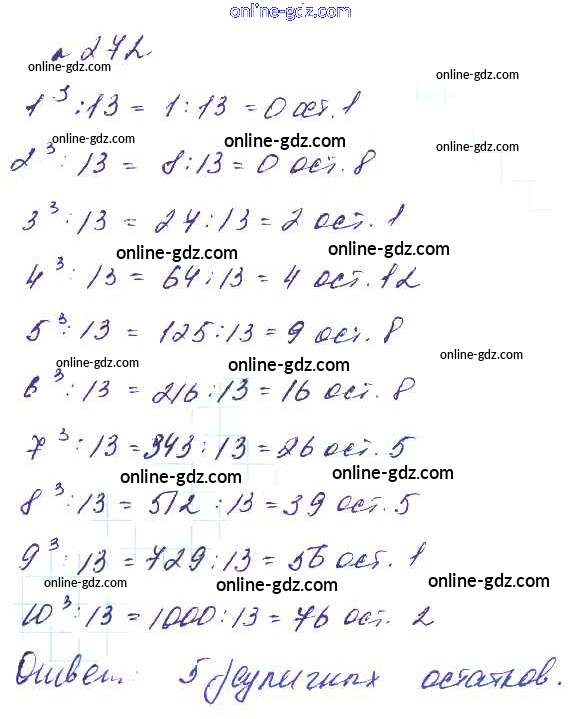 online-gdz.com
№ 272.
online-gdz.com online-gdz.com
1³ : 13 = 1 : 13 = 0 ост. 1
online-gdz.com online-gdz.com online-gdz.com
2³ : 13 = 8 : 13 = 0 ост. 8
3³ : 13 = 27 : 13 = 2 ост. 1
online-gdz.com online-gdz.com
4³ : 13 = 64 : 13 = 4 ост. 12
5³ : 13 = 125 : 13 = 9 ост. 8
online-gdz.com online-gdz.com online-gdz.com
6³ : 13 = 216 : 13 = 16 ост. 8
7³ : 13 = 343 : 13 = 26 ост. 5
online-gdz.com online-gdz.com
8³ : 13 = 512 : 13 = 39 ост. 5
9³ : 13 = 729 : 13 = 56 ост. 1
online-gdz.com online-gdz.com online-gdz.com
10³ : 13 = 1000 : 13 = 76 ост. 2
Ответ: 5 остатков.